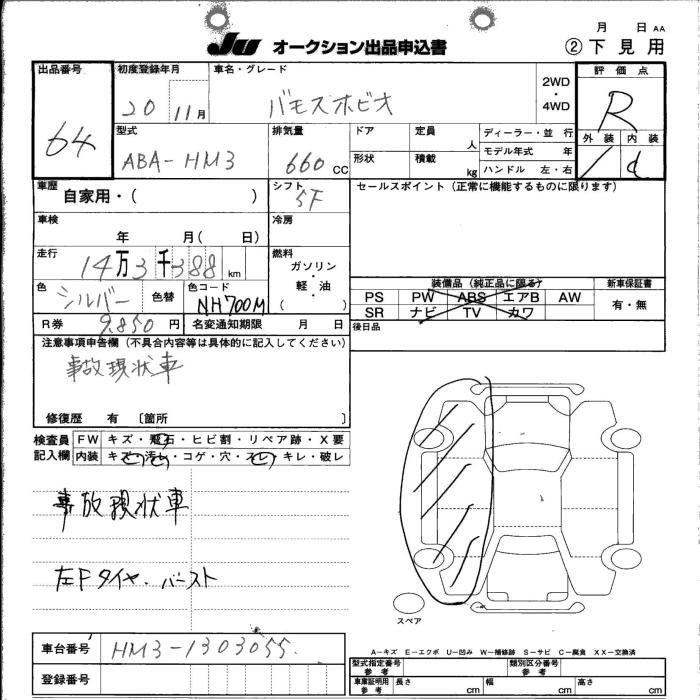 月 日 AA
JU オークション出品申込書 ②下見用
出品番号 初度登録年月 車名・グレード 2WD・4WD 評価点
64 20 11月 バモスホビオ R
型式 排気量 ドア 定員 人 ディーラー・並 行 外装 内装
ABA-HM3 660 CC 形状 積載 kg モデル年式 年 d
ハンドル 左・右
車歴 自家用・( ) シフト 5F セールスポイント (正常に機能するものに限ります)
車検 年 月( 日) 冷房
走行 14万3千388km 燃料 ガソリン・軽油・( )
色 シルバー 色替 色コード NH700M 装備品 (純正品に限る) 新車保証書
PS PW ABS エアB AW 有・無
SR ナビ TV カワ
R券 9,850円 名変通知期限 月 日 後日品
注意事項申告欄 (不具合内容等は具体的に記入してください)
事故現状車
修復歴 有 [箇所 ]
検査員記入欄 FW キズ・飛石・ヒビ割・リペア跡・X要
内装 キズ・汚れ・コゲ・穴・スレ・キレ・破レ
事故現状車
左Fタイヤ・バースト
スペア
車台番号 HM3-1303055
登録番号
A-キズ E-エクボ U-凹み W-補修跡 S-サビ C-腐食 XX-交換済
型式指定番号 参考 類別区分番号 参考
車庫証明用 参考 長さ cm 幅 cm 高さ cm